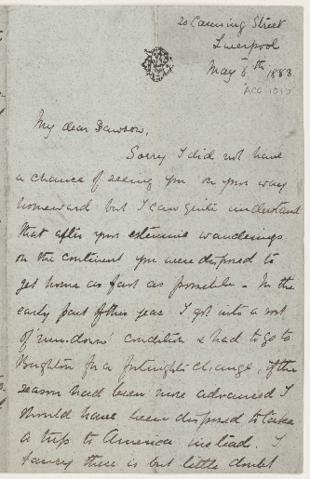 20 Canning Street
Liverpool
May 8th 1883
My dear Dawson,
Sorry I did not have
a chance of seeing you on your way
homeward but I can quite understand
that after your extensive wanderings
on the continent you were disposed to
get home as fast as possible - In the
early part of this year I got into a sort
of 'run-down' condition & had to go to
Brighton for a fortnight's change, if the
season had been more advanced I
should have been disposed to take
a trip to America instead. I
fancy there is but little doubt